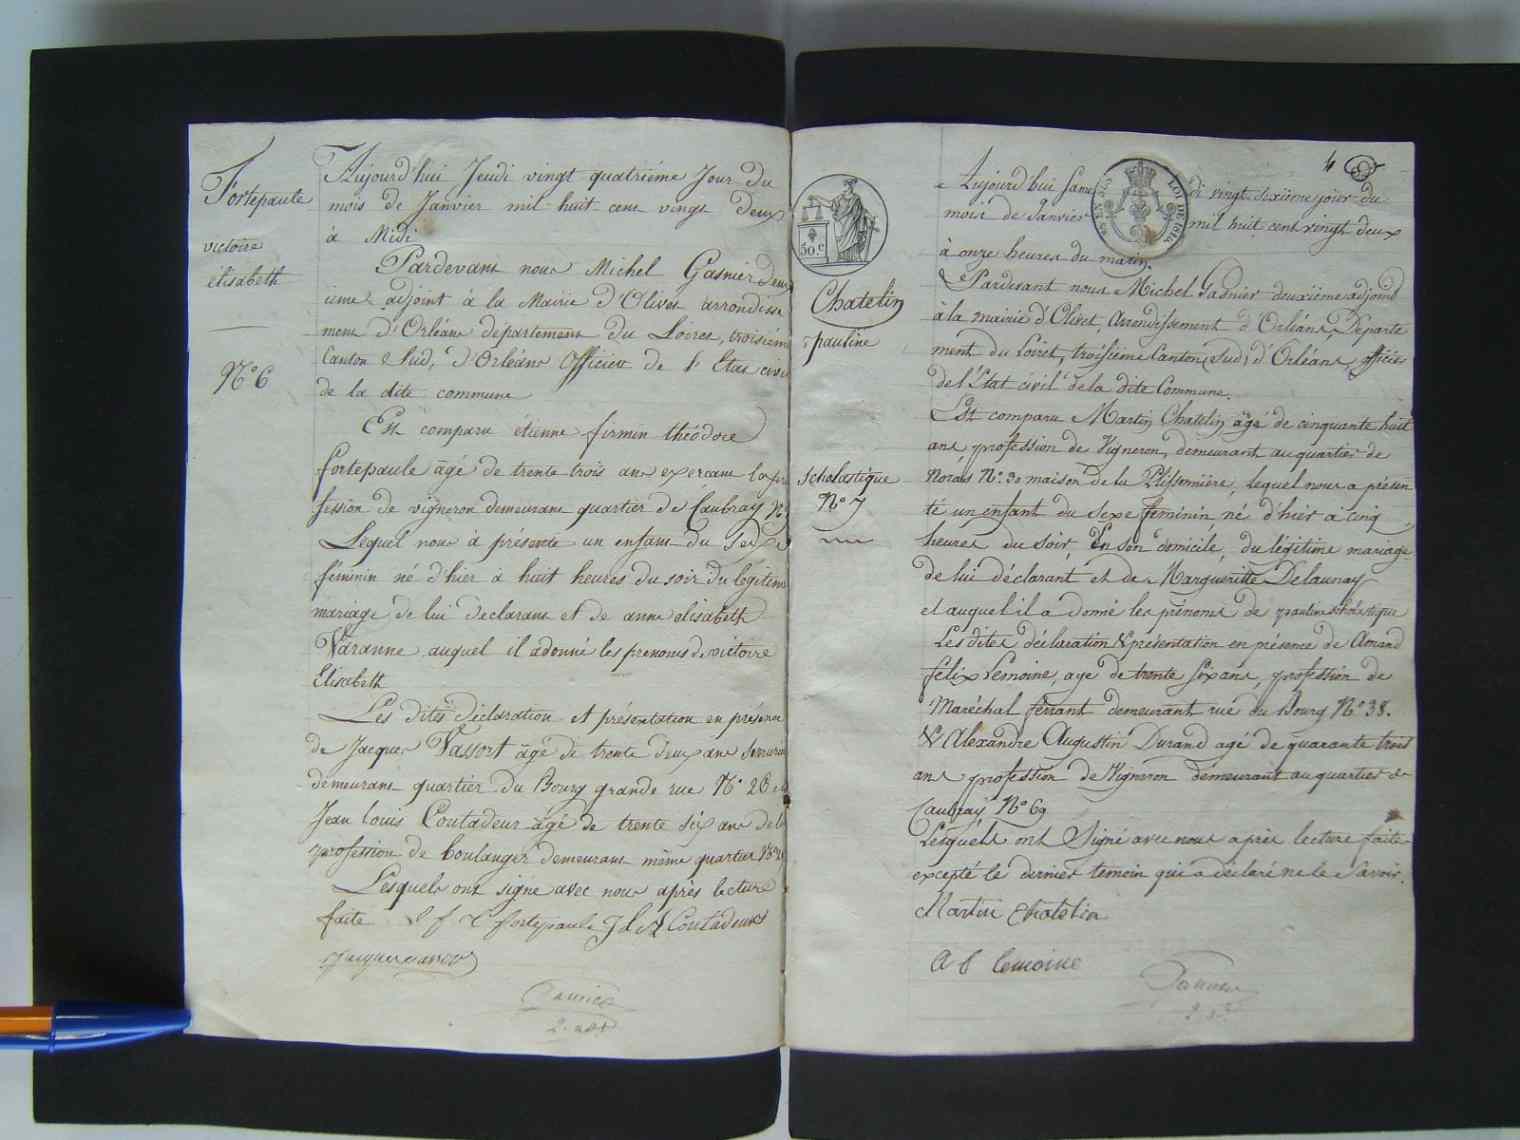 Fortepaule
victoire
élisabeth
N.° 6
Aujourd'hui Jeudi vingt quatriéme Jour du
mois de Janvier mil huit cent vingt deux
à Midi
Pardevant nous Michel Gasnier deux
ième adjoint à la Mairie d'Olivet arrondisse
ment d'Orléans département du Loiret, troisiéme
Canton Sud, d'Orléans Officier de l'Etat civil
de la dite commune
Est comparu étienne firmin théodore
fortepaule âgé de trente trois ans exercant la pro
fession de vigneron demeurant quartier de Caubray N.°
Lequel nous à présenté un enfant du Sexe
féminin né d'hier à huit heures du soir du légitime
mariage de lui declarant et de anne elisabeth
Varanne auquel il a donné les prenoms de victoire
Elisabeth
Les dites Déclaration et présentation en présence
de Jacques Vassort âgé de trente deux ans Serrurier
demeurant quartier du Bourg grande rue N.° 26 et
Jean louis Coutadeur âgé de trente six ans de la
profession de boulanger demeurant même quartier N.°
Lesquels ont signé avec nous après lecture
faite E f t fortepaule J L Coutadeur
Gasnier
2. adt
50.c
Chatelin
pauline
scholastique
N.° 7
4
LOI DE 1816
Aujourd'hui Samedi vingt sixième jour du
mois de Janvier mil huit cent vingt deux
à onze heures du matin.
Pardevant nous Michel Gasnier deuxième adjoint
à la mairie d'Olivet, Arrondissement d'Orléans, Départe
ment du Loiret, troisième Canton (Sud) d'Orléans, officier
de l'Etat civil de la dite Commune.
Est comparu Martin Chatelin âgé de cinquante huit
ans, profession de Vigneron, demeurant au quartier de
Noras N.° 30 maison de la Plissonnière, lequel nous a présen
té un enfant du Sexe féminin, né d'hier à cinq
heures du soir, En son domicile, du légitime mariage
de lui déclarant et de Margueritte Delaunay
et auquel il a donné les prénoms de pauline scholastique
Les dites déclaration & présentation en présence de Amand
félix Lemoine, agé de trente six ans, profession de
Maréchal ferrant demeurant rue du Bourg N.° 38.
& Alexandre Augustin Durand agé de quarante trois
ans profession de Vigneron demeurant au quartier de
Caubray N.° 69
Lesquels ont Signé avec nous après lecture faite
excepté le dernier temoin qui a déclaré ne le Savoir.
Martin Chatelin
A f lemoine
Gasnier
2. adt